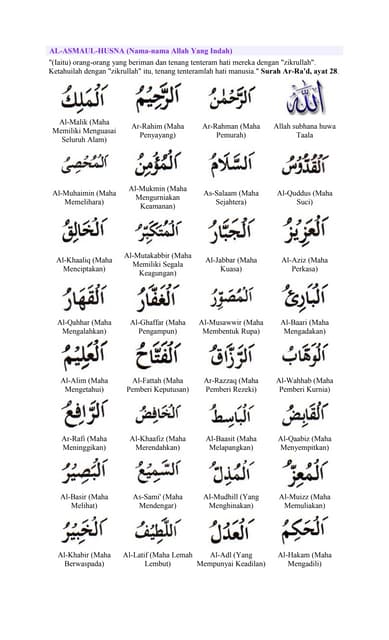 AL-ASMAUL-HUSNA (Nama-nama Allah Yang Indah)
"(Iaitu) orang-orang yang beriman dan tenang tenteram hati mereka dengan "zikrullah".
Ketahuilah dengan "zikrullah" itu, tenang tenteramlah hati manusia." Surah Ar-Ra'd, ayat 28.
الله
Allah subhana huwa
Taala
اَلرَّحْمٰنُ
Ar-Rahman (Maha
Pemurah)
اَلرَّحِيْمُ
Ar-Rahim (Maha
Penyayang)
اَلْمَلِكُ
Al-Malik (Maha
Memiliki Menguasai
Seluruh Alam)
اَلْقُدُّوْسُ
Al-Quddus (Maha
Suci)
اَلسَّلَامُ
As-Salaam (Maha
Sejahtera)
اَلْمُؤْمِنُ
Al-Mukmin (Maha
Mengurniakan
Keamanan)
اَلْمُحْصِى
Al-Muhaimin (Maha
Memelihara)
اَلْعَزِيْزُ
Al-Aziz (Maha
Perkasa)
اَلْجَبَّارُ
Al-Jabbar (Maha
Kuasa)
اَلْمُتَكَبِّرُ
Al-Mutakabbir (Maha
Memiliki Segala
Keagungan)
اَلْخَالِقُ
Al-Khaaliq (Maha
Menciptakan)
اَلْبَارِئُ
Al-Baari (Maha
Mengadakan)
اَلْمُصَوِّرُ
Al-Musawwir (Maha
Membentuk Rupa)
اَلْغَفَّارُ
Al-Ghaffar (Maha
Pengampun)
اَلْقَهَّارُ
Al-Qahhar (Maha
Mengalahkan)
اَلْوَهَّابُ
Al-Wahhab (Maha
Pemberi Kurnia)
اَلرَّزَّاقُ
Ar-Razzaq (Maha
Pemberi Rezeki)
اَلْفَتَّاحُ
Al-Fattah (Maha
Pemberi Keputusan)
اَلْعَلِيْمُ
Al-Alim (Maha
Mengetahui)
اَلْقَابِضُ
Al-Qaabiz (Maha
Menyempitkan)
اَلْبَاسِطُ
Al-Baasit (Maha
Melapangkan)
اَلْخَافِضُ
Al-Khaafiz (Maha
Merendahkan)
اَلرَّافِعُ
Ar-Rafi (Maha
Meninggikan)
اَلْمُعِزُّ
Al-Muizz (Maha
Memuliakan)
اَلْمُذِلُّ
Al-Mudhill (Yang
Menghinakan)
اَلسَّمِيْعُ
As-Sami' (Maha
Mendengar)
اَلْبَصِيْرُ
Al-Basir (Maha
Melihat)
اَلْحَكِمُ
Al-Hakam (Maha
Mengadili)
اَلْعَدْلُ
Al-Adl (Yang
Mempunyai Keadilan)
اَللَّطِيْفُ
Al-Latif (Maha Lemah
Lembut)
اَلْخَبِيْرُ
Al-Khabir (Maha
Berwaspada)